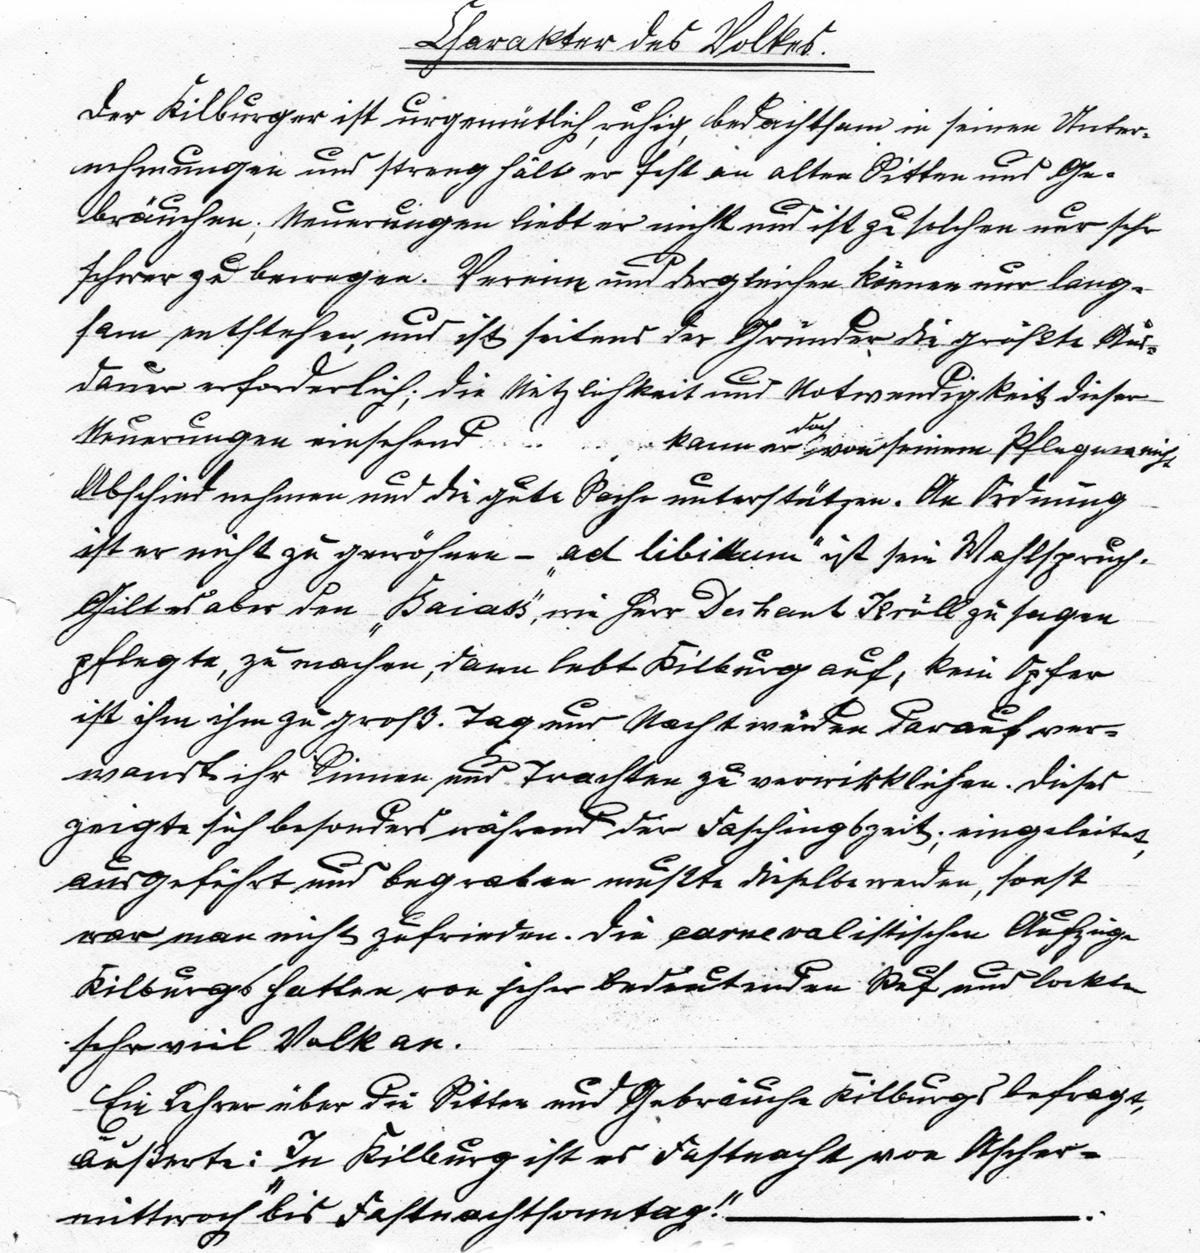 Charakter des Volkes.
Der Kilburger ist urgemütlich, ruhig, bedachtsam in seinen Unter-
nehmungen und streng hält er fest an alten Sitten und Ge-
bräuchen; Neuerungen liebt er nicht und ist zu solchen nur sehr
schwer zu bewegen. Vereine und dergleichen können nur lang-
sam entstehen, und ist seitens der Gründer die größte Aus-
dauer erforderlich; die Nützlichkeit und Notwendigkeit dieser
Neuerungen einsehend kann er doch von seinem Pflegma nicht
Abschied nehmen und die gute Sache unterstützen. An Ordnung
ist er nicht zu gewöhnen – „ad libitum" ist sein Wahlspruch.
Gilt es aber den „Baiass", wie Herr Dechant Kröll zu sagen
pflegte, zu machen, dann lebt Kilburg auf, kein Opfer
ist ihm ihm zu groß. Tag und Nacht würden darauf ver-
wandt ihr Sinnen und Trachten zu verwirklichen. Dieses
zeigte sich besonders während der Faschingszeit; eingeleitet,
ausgeführt und begraben mußte dieselbe werden, sonst
war man nicht zufrieden. Die carnevalistischen Aufzüge
Kilburgs hatten von jeher bedeutenden Ruf und lockten
sehr viel Volk an.
Ein Lehrer über die Sitten und Gebräuche Kilburgs befragt,
äußerte: „In Kilburg ist es Fastnacht von Ascher-
mittwoch bis Fastnachtsonntag!"